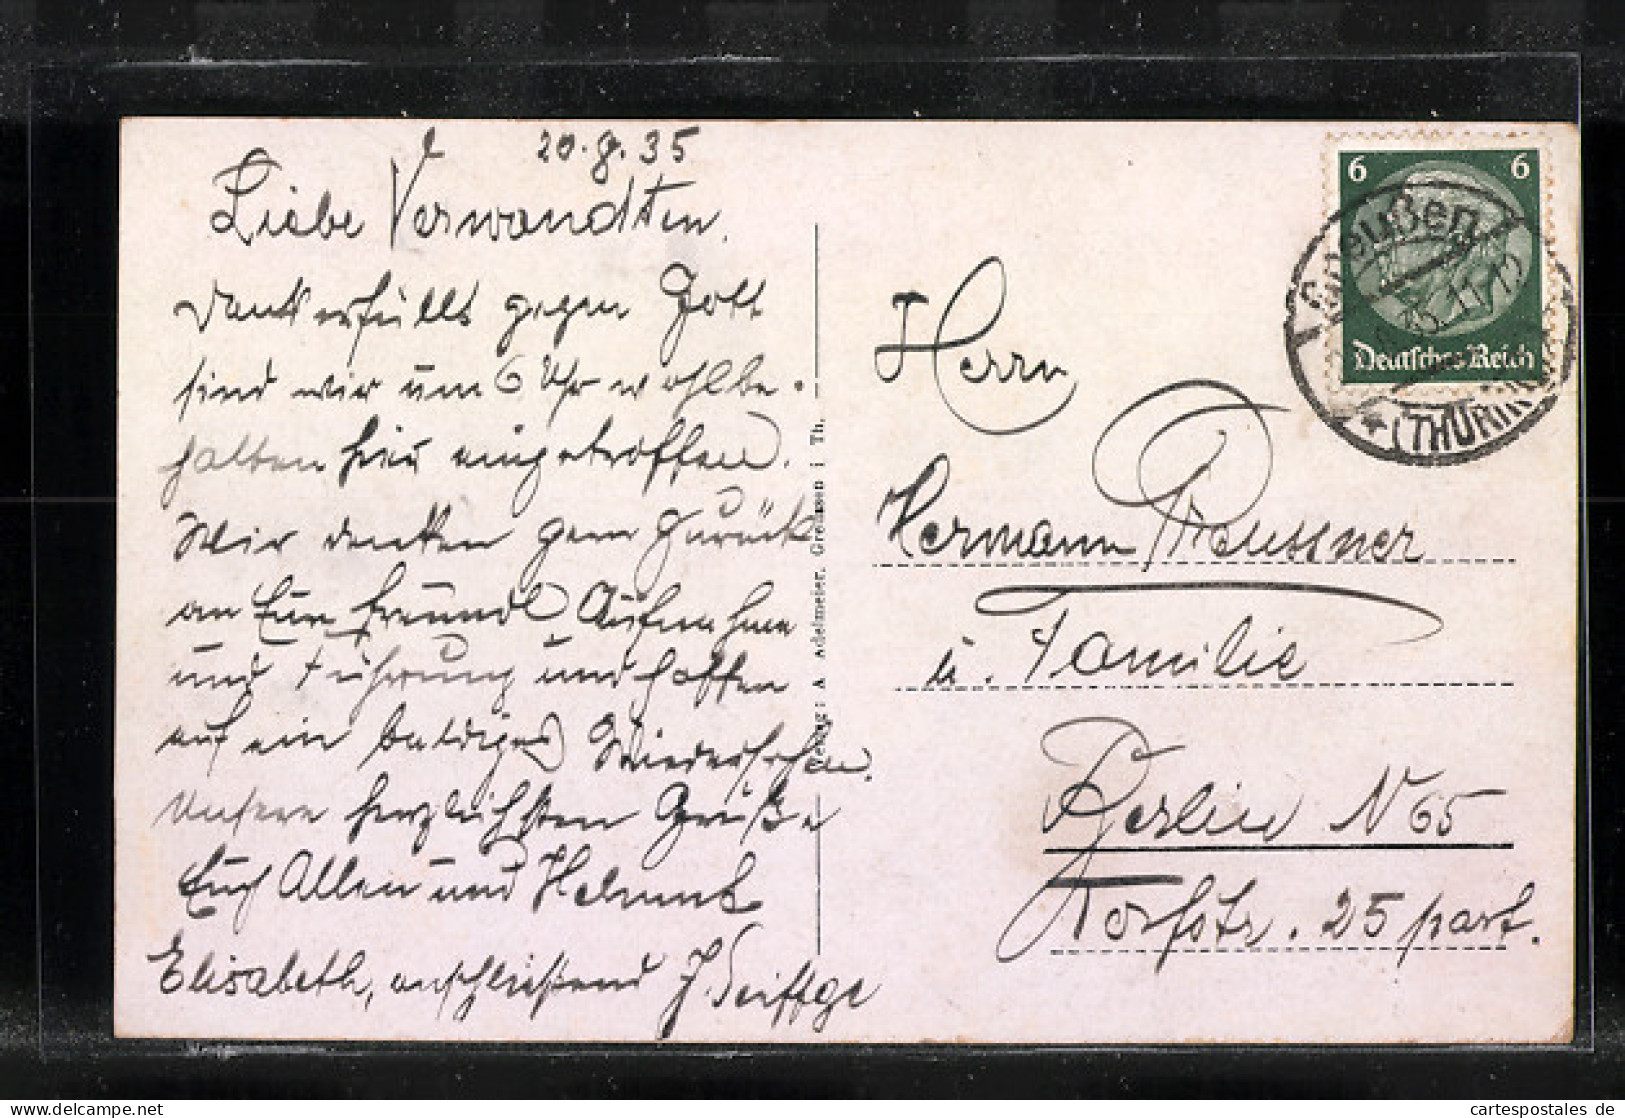 20.8.35
Liebe Verwandten.
Dankerfüllt gegen Gott
sind wir um 6 Uhr wohlbe-
halten hier eingetroffen.
Wir denken gern zurück
an Eure freundl Aufnahme
und Führung und hoffen
auf ein baldiges Wiedersehen.
Unsere herzlichsten Grüße
Euch Allen und Helmut
Elisabeth, anschließend J. Seiffge
Verlag: A Adelmeier, Greussen i Th.
6 6
Deutsches Reich
Greußen
11-12
(THÜRING
Herrn
Hermann Preussner
u. Familie
Berlin N 65
Torfstr. 25 part.
cartespostales de